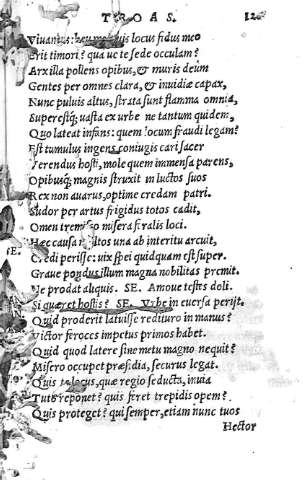 TROAS.
Viuamus: heu locus fidus meo
Erit timori? qua ue te sede occulam?
Arx illa pollens opibus, & muris deûm
Gentes per omnes clara, & inuidiæ capax,
Nunc puluis altus, strata sunt flamma omnia,
Superestq; uasta ex urbe ne tantum quidem,
Quo lateat infans: quem locum fraudi legam?
Est tumulus ingens coniugis cari sacer
Verendus hosti, mole quem immensa parens,
Opibusq; magnis struxit in luctus suos
Rex non auarus, optime credam patri.
Sudor per artus frigidus totos cadit,
Omen tremisco misera feralis loci.
Hæc causa multos una ab interitu arcuit,
SE.
Credi perisse: uix spei quidquam est super.
Graue pondus illum magna nobilitas premit.
Ne prodat aliquis. SE. Amoue testes doli.
Si quæret hostis? SE. Vrbe in euersa perijt.
Quid proderit latuisse redituro in manus?
Victor feroces impetus primos habet.
Quid quod latere sine metu magno nequit?
Misero occupet præsidia, securus legat.
Quis te locus, quæ regio seducta, inuia
Tuto reponet? quis feret trepidis opem?
Quis proteget? qui semper, etiam nunc tuos
Hector